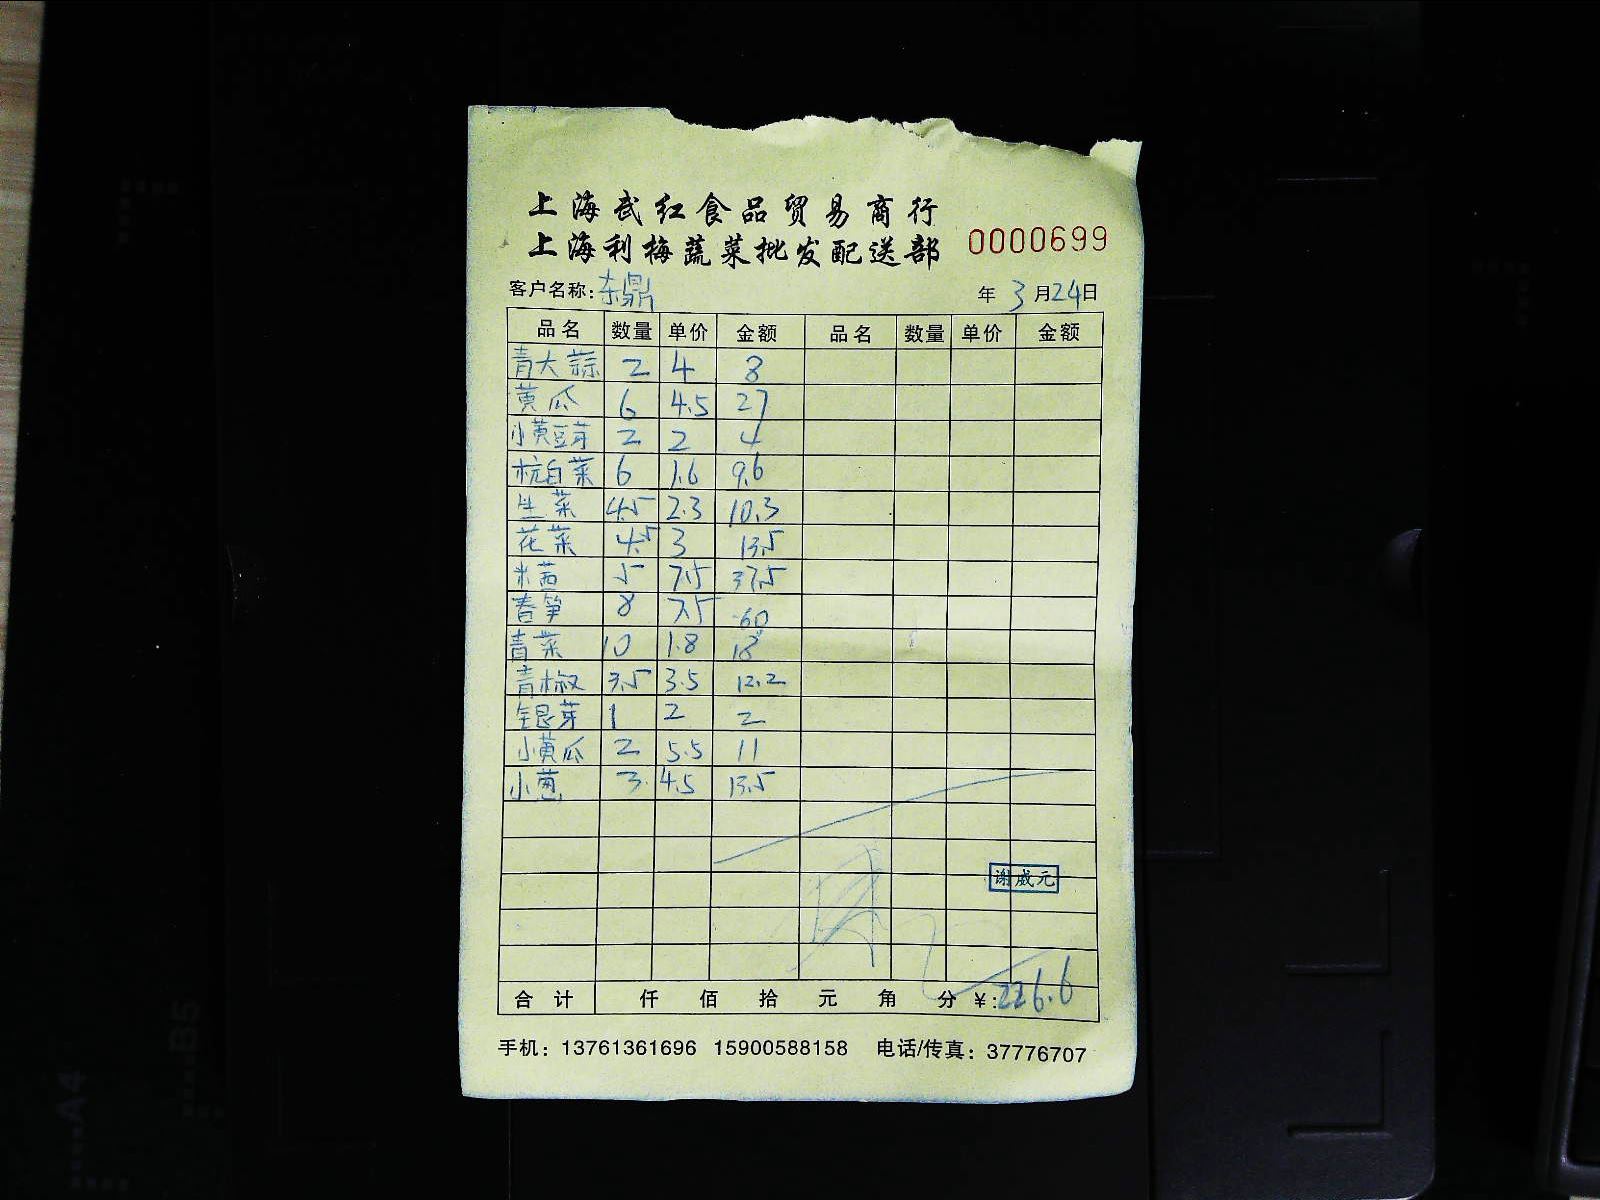 上海武红食品贸易商行
上海利梅蔬菜批发配送部 0000699
客户名称:东鼎 年 3 月 24 日
品名 数量 单价 金额 品名 数量 单价 金额
青大蒜 2 4 8
黄瓜 6 4.5 27
小黄豆芽 2 2 4
杭白菜 6 1.6 9.6
生菜 4.5 2.3 10.3
花菜 4.5 3 13.5
米茜 5 7.5 37.5
春笋 8 7.5 60
青菜 10 1.8 18
青椒 3.5 3.5 12.2
银芽 1 2 2
小黄瓜 2 5.5 11
小葱 3 4.5 13.5
谢威元
合计 仟 佰 拾 元 角 分 ¥:226.6
手机：13761361696 15900588158 电话/传真：37776707
B5
A4